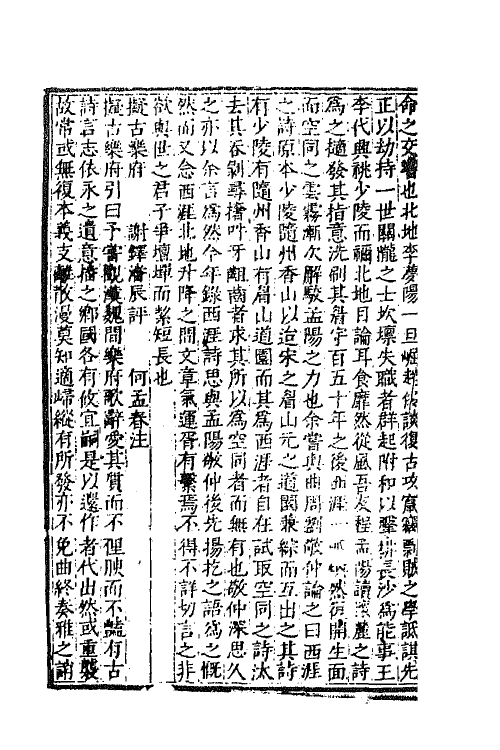 命之交響也北地李夢陽一旦崛起侈談復古攻竄竊剽賊之學詆諆先
正以劫持一世關隴之士坎壈失職者群起附和以擊排長沙為能事王
李代興祧少陵而禰北地目論耳食靡然從風吾友程孟陽讀懷麓之詩
為之摘發其指意洗刷其眉宇百五十年之後西涯一派煥然復開生面
而空同之雲霧漸次解駮孟陽之力也余嘗與曲周劉敬仲論之曰西涯
之詩原本少陵隨州香山以迨宋之眉山元之道園兼綜而互出之其詩
有少陵有隨州香山有眉山道園而其為西涯者自在試取空同之詩汰
去其吞剝尋撦吽牙齟齒者求其所以為空同者而無有也敬仲深思久
之亦以余言為然今年錄西涯詩思與孟陽敬仲後先揚扢之語為之慨
然而又念西涯北地升降之間文章氣運胥有繫焉不得不詳切言之非
欲與世之君子爭壇墠而絜短長也
擬古樂府　謝鐸潘辰評　何孟春注
擬古樂府引曰予嘗觀漢魏間樂府歌辭愛其質而不俚腴而不豔有古
詩言志依永之遺意播之鄉國各有攸宜嗣是以還作者代出然或重襲
故常或無復本義支離散漫莫知適歸縱有所發亦不免曲終奏雅之誚